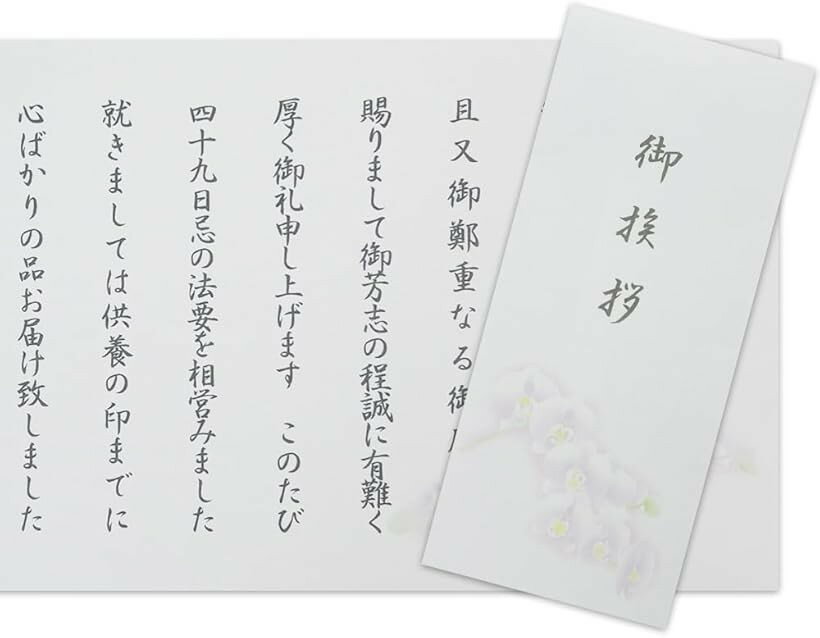 御挨拶
且又御鄭重なる御
賜りまして御芳志の程誠に有難く
厚く御礼申し上げます　このたび
四十九日忌の法要を相営みました
就きましては供養の印までに
心ばかりの品お届け致しました